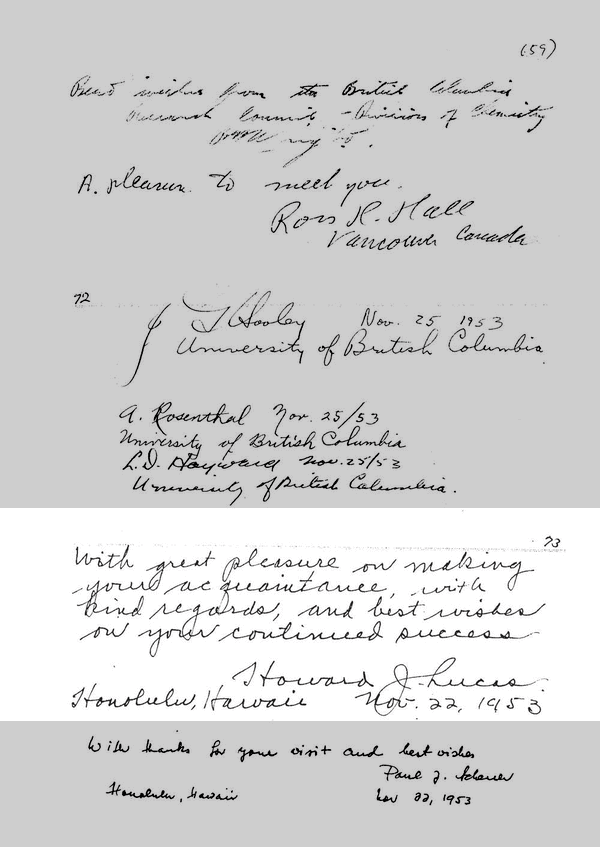 (59)
Best wishes from the British Columbia
Research Council, - Division of Chemistry
A. pleasure to meet you.
Ross H. Hall
Vancouver Canada
72
Nov. 25 1953
University of British Columbia
A. Rosenthal Nov. 25/53
University of British Columbia
L.D. Hayward Nov. 25/53
University of British Columbia.
73
With great pleasure on making
your acquaintance, with
kind regards, and best wishes
on your continued success
Howard J. Lucas
Honolulu, Hawaii Nov. 22, 1953
With thanks for your visit and best wishes
Paul J. Scheuer
Honolulu, Hawaii Nov 22, 1953